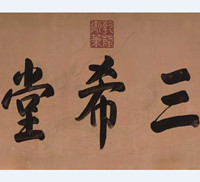 三希堂